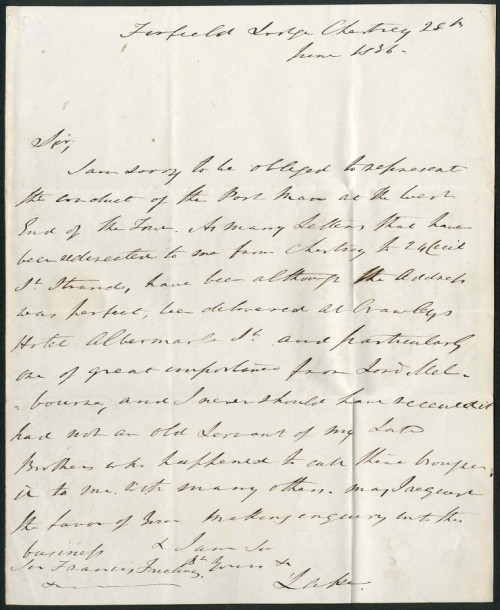 Firfield Lodge Chertsey 28th
June 1836-
Sir,
I am sorry to be obliged to represent
the conduct of the Post Man at the west
End of the Town. As many Letters that have
been redirected to me from Chertsey to 24 Cecil
St. Strand, have been although the Address
was perfect, been delivered at Crawleys
Hotel Albermarle St. and particularly
one of great importance from Lord Mel-
-bourne, and I never should have received it
had not an old Servant of my Late
Brothers who happened to call there brought
it to me. with many others. may I request
the favor of Your making enquiry into this
business & I am Sir
Sir Francis Freeling Bt. Yours &
Lake